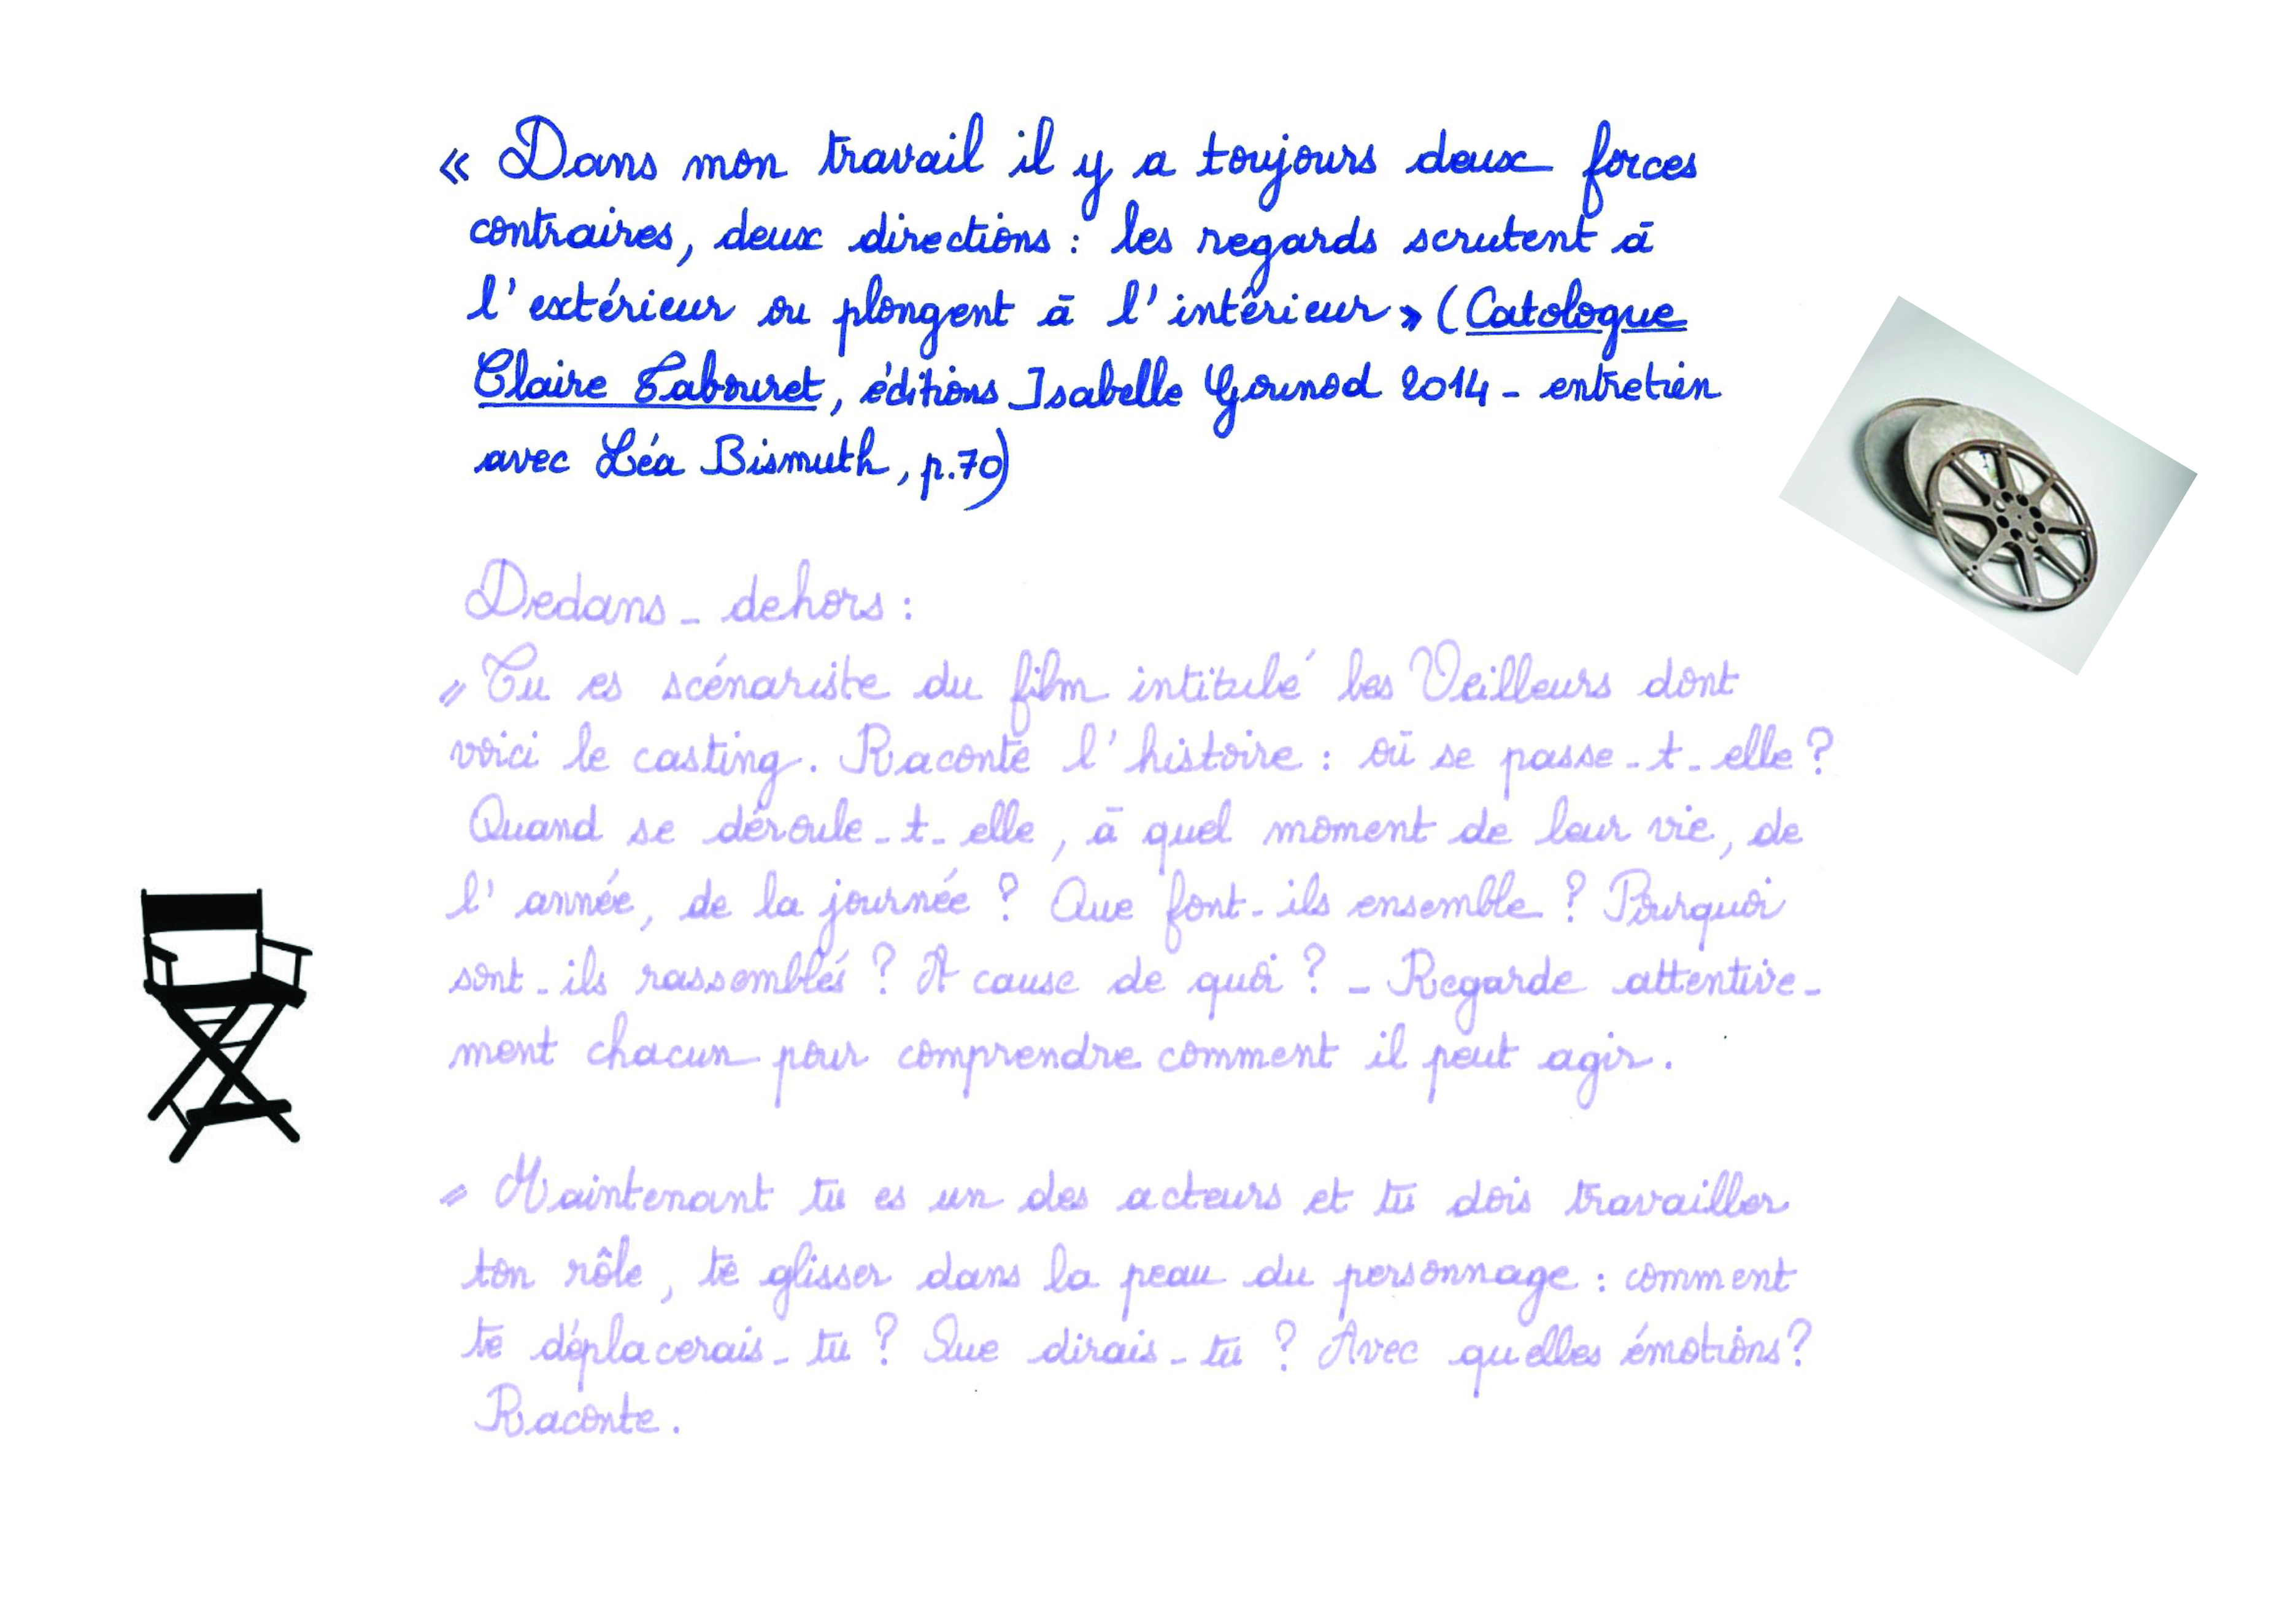 « Dans mon travail il y a toujours deux forces
contraires, deux directions : les regards scrutent à
l'extérieur ou plongent à l'intérieur » (Catologue
Claire Tabouret, éditions Isabelle Gounod 2014 - entretien
avec Léa Bismuth, p.70)
Dedans - dehors :
" Tu es scénariste du film intitulé les Veilleurs dont
voici le casting. Raconte l'histoire : où se passe-t-elle ?
Quand se déroule-t-elle, à quel moment de leur vie, de
l'année, de la journée ? Que font-ils ensemble ? Pourquoi
sont-ils rassemblés ? A cause de quoi ? - Regarde attentive-
ment chacun pour comprendre comment il peut agir.
" Maintenant tu es un des acteurs et tu dois travailler
ton rôle, te glisser dans la peau du personnage : comment
te déplacerais-tu ? Que dirais-tu ? Avec quelles émotions ?
Raconte.